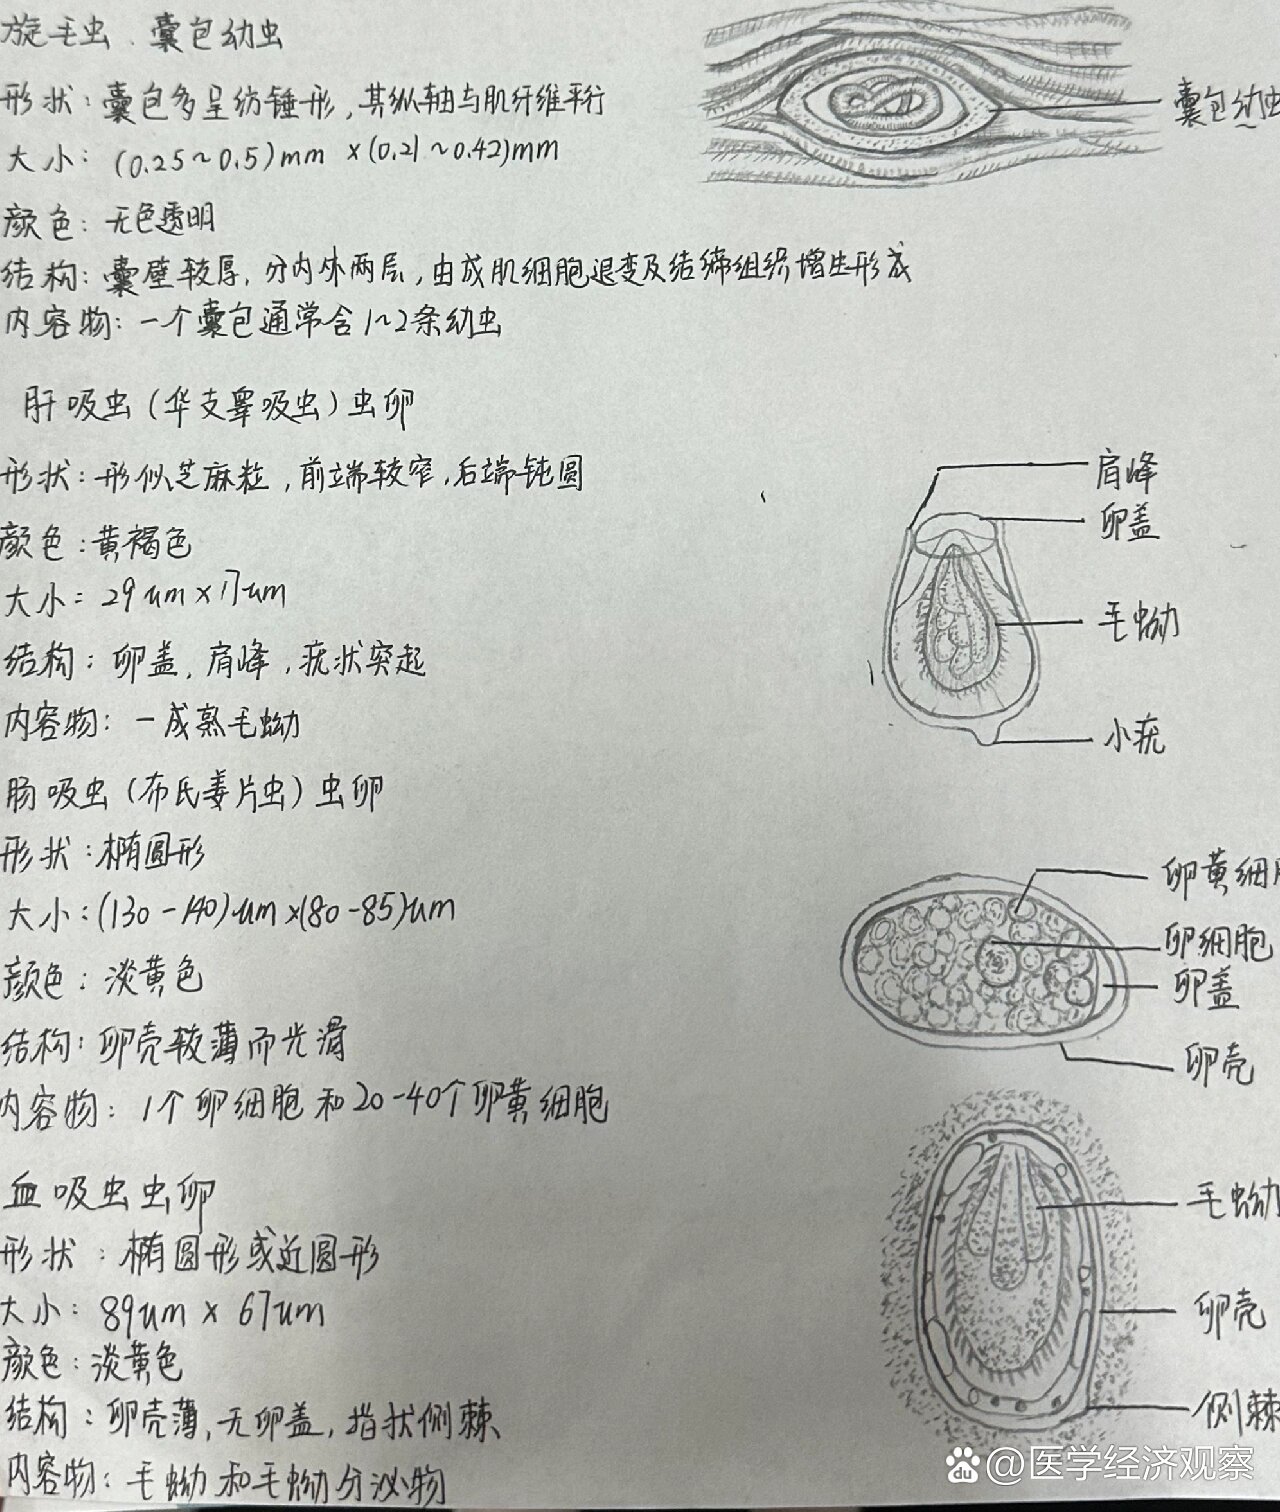 旋毛虫、囊包幼虫
形状：囊包多呈纺锤形，其纵轴与肌纤维平行
大小：(0.25~0.5)mm×(0.21~0.42)mm
颜色：无色透明
结构：囊壁较厚，分内外两层，由成肌细胞退变及结缔组织增生形成
内容物：一个囊包通常含1~2条幼虫
囊包幼虫
肝吸虫(华支睾吸虫)虫卵
形状：形似芝麻粒，前端较窄，后端钝圆
颜色：黄褐色
大小：29um×17um
结构：卵盖，肩峰，疣状突起
内容物：一成熟毛蚴
肩峰
卵盖
毛蚴
小疣
肠吸虫(布氏姜片虫)虫卵
形状：椭圆形
大小：(130-140)um×(80-85)um
颜色：淡黄色
结构：卵壳较薄而光滑
内容物：1个卵细胞和20-40个卵黄细胞
卵黄细胞
卵细胞
卵盖
卵壳
血吸虫虫卵
形状：椭圆形或近圆形
大小：89um×67um
颜色：淡黄色
结构：卵壳薄，无卵盖，指状侧棘、
内容物：毛蚴和毛蚴分泌物
毛蚴
卵壳
侧棘
du @医学经济观察